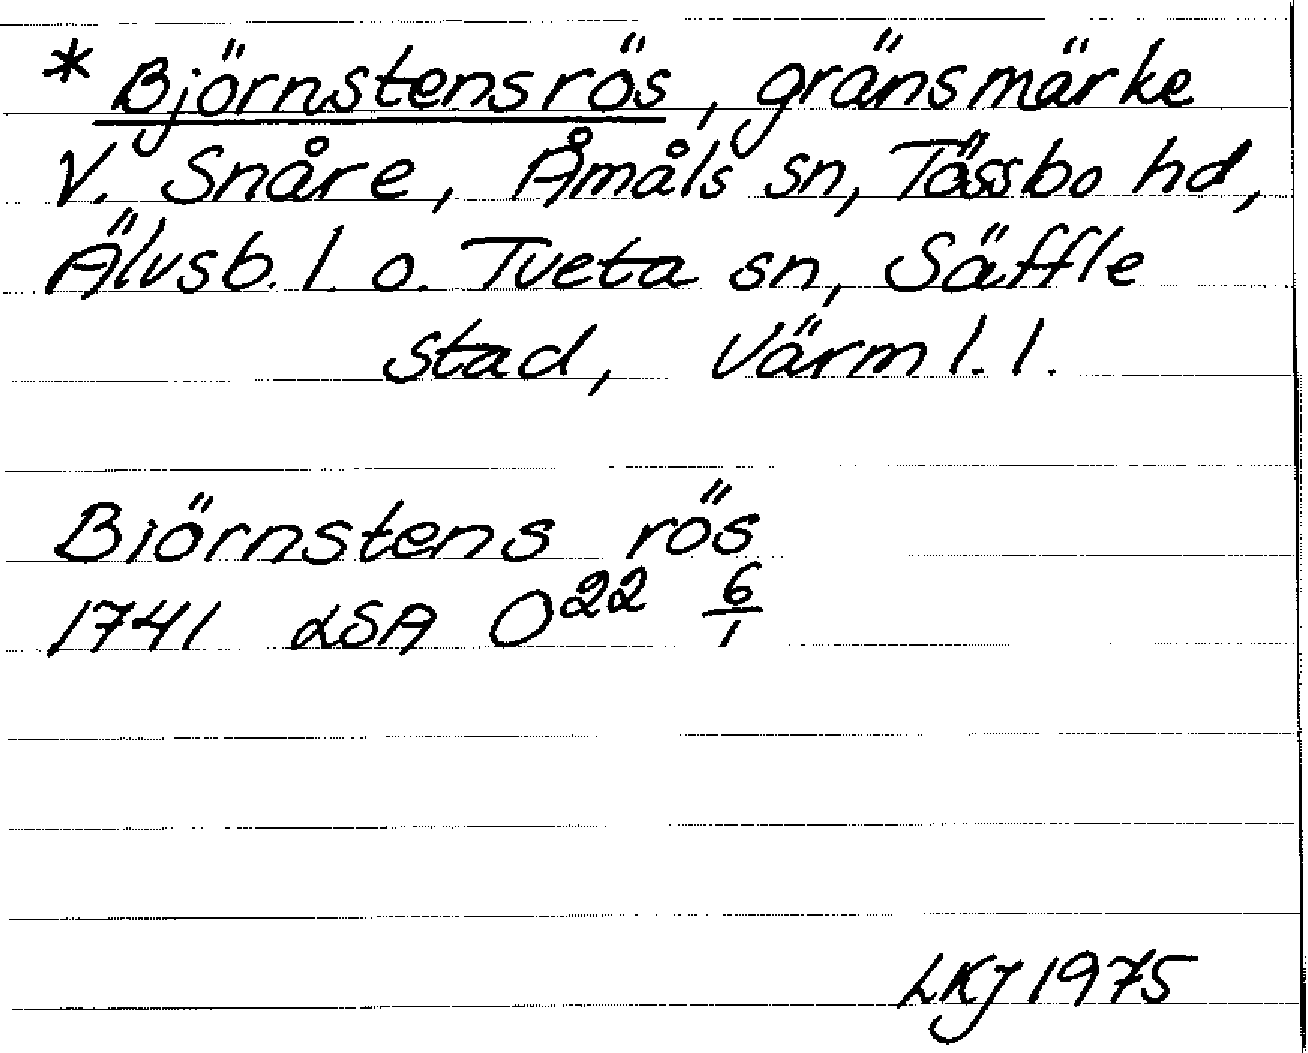 * Björnstensrös, gränsmärke
V. Snåre, Åmåls sn, Tössbo hd,
Älvsb. l. o. Tveta sn, Säffle
stad, Värml. l.
Biörnstens rös
1741 LSA O²² 6/1
LKJ 1975